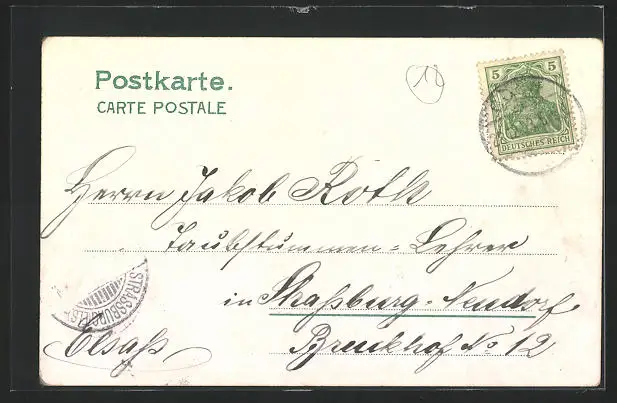 Postkarte.
CARTE POSTALE
18
5 5
DEUTSCHES REICH
Herrn Jakob Roth
Taubstummen=Lehrer
in Straßburg-Neudorf
STRASSBURG (ELS)
Elsaß
Bruckhof No 12